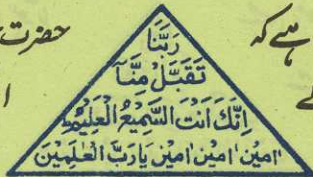 ہے کہ
حضرت
رَبَّنَا
تَقَبَّلْ مِنَّآ
اِنَّكَ اَنْتَ السَّمِيْعُ الْعَلِيْمُ
اٰمین اٰمین اٰمین یَا رَبَّ الْعٰلَمِیْنَ